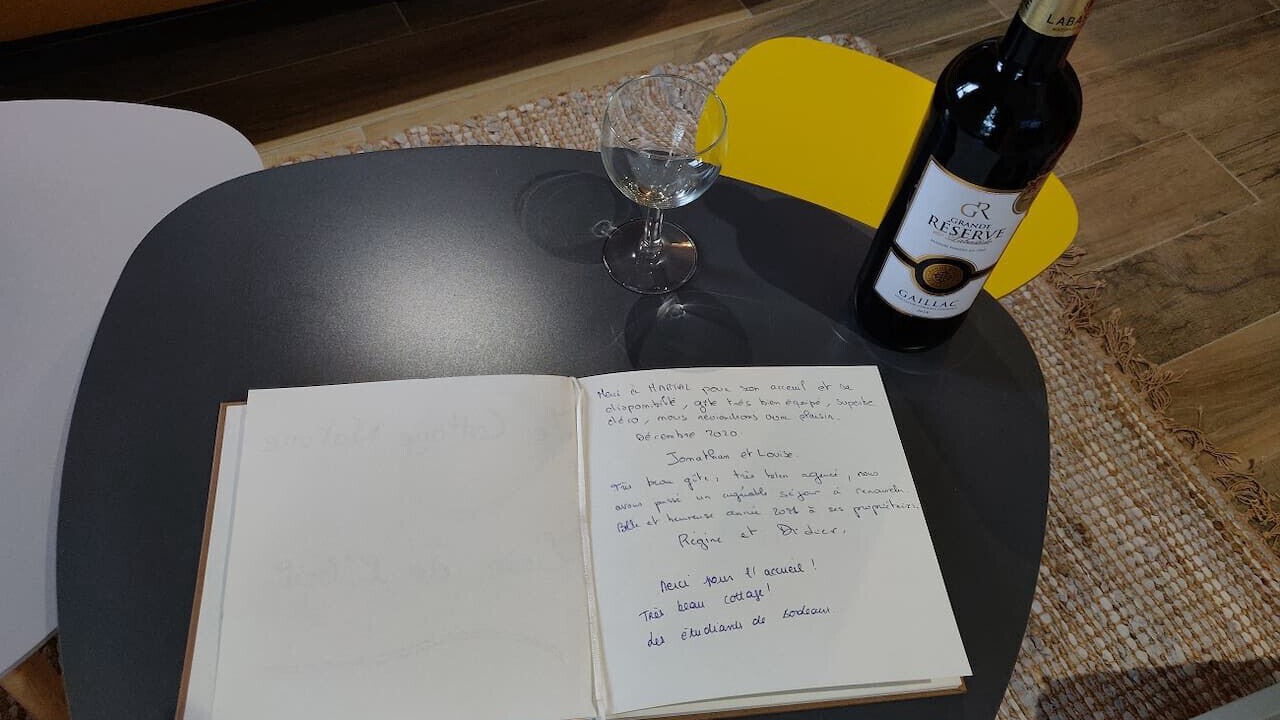 Merci à MARTIAL pour son acceuil et sa
disponibilité, gîte très bien équipé, superbe
déco, nous reviendrons avec plaisir.
Décembre 2020.
Jonathan et Louise.
Très beau gîte, très bien agencé, nous
avons passé un agréable séjour à renouveler
Belle et heureuse année 2021 à ses propriétaires.
Régine et Didier.
Merci pour l'accueil !
Très beau cottage!
des étudiants de Bordeaux.
GR
GRANDE
RÉSERVE
GAILLAC